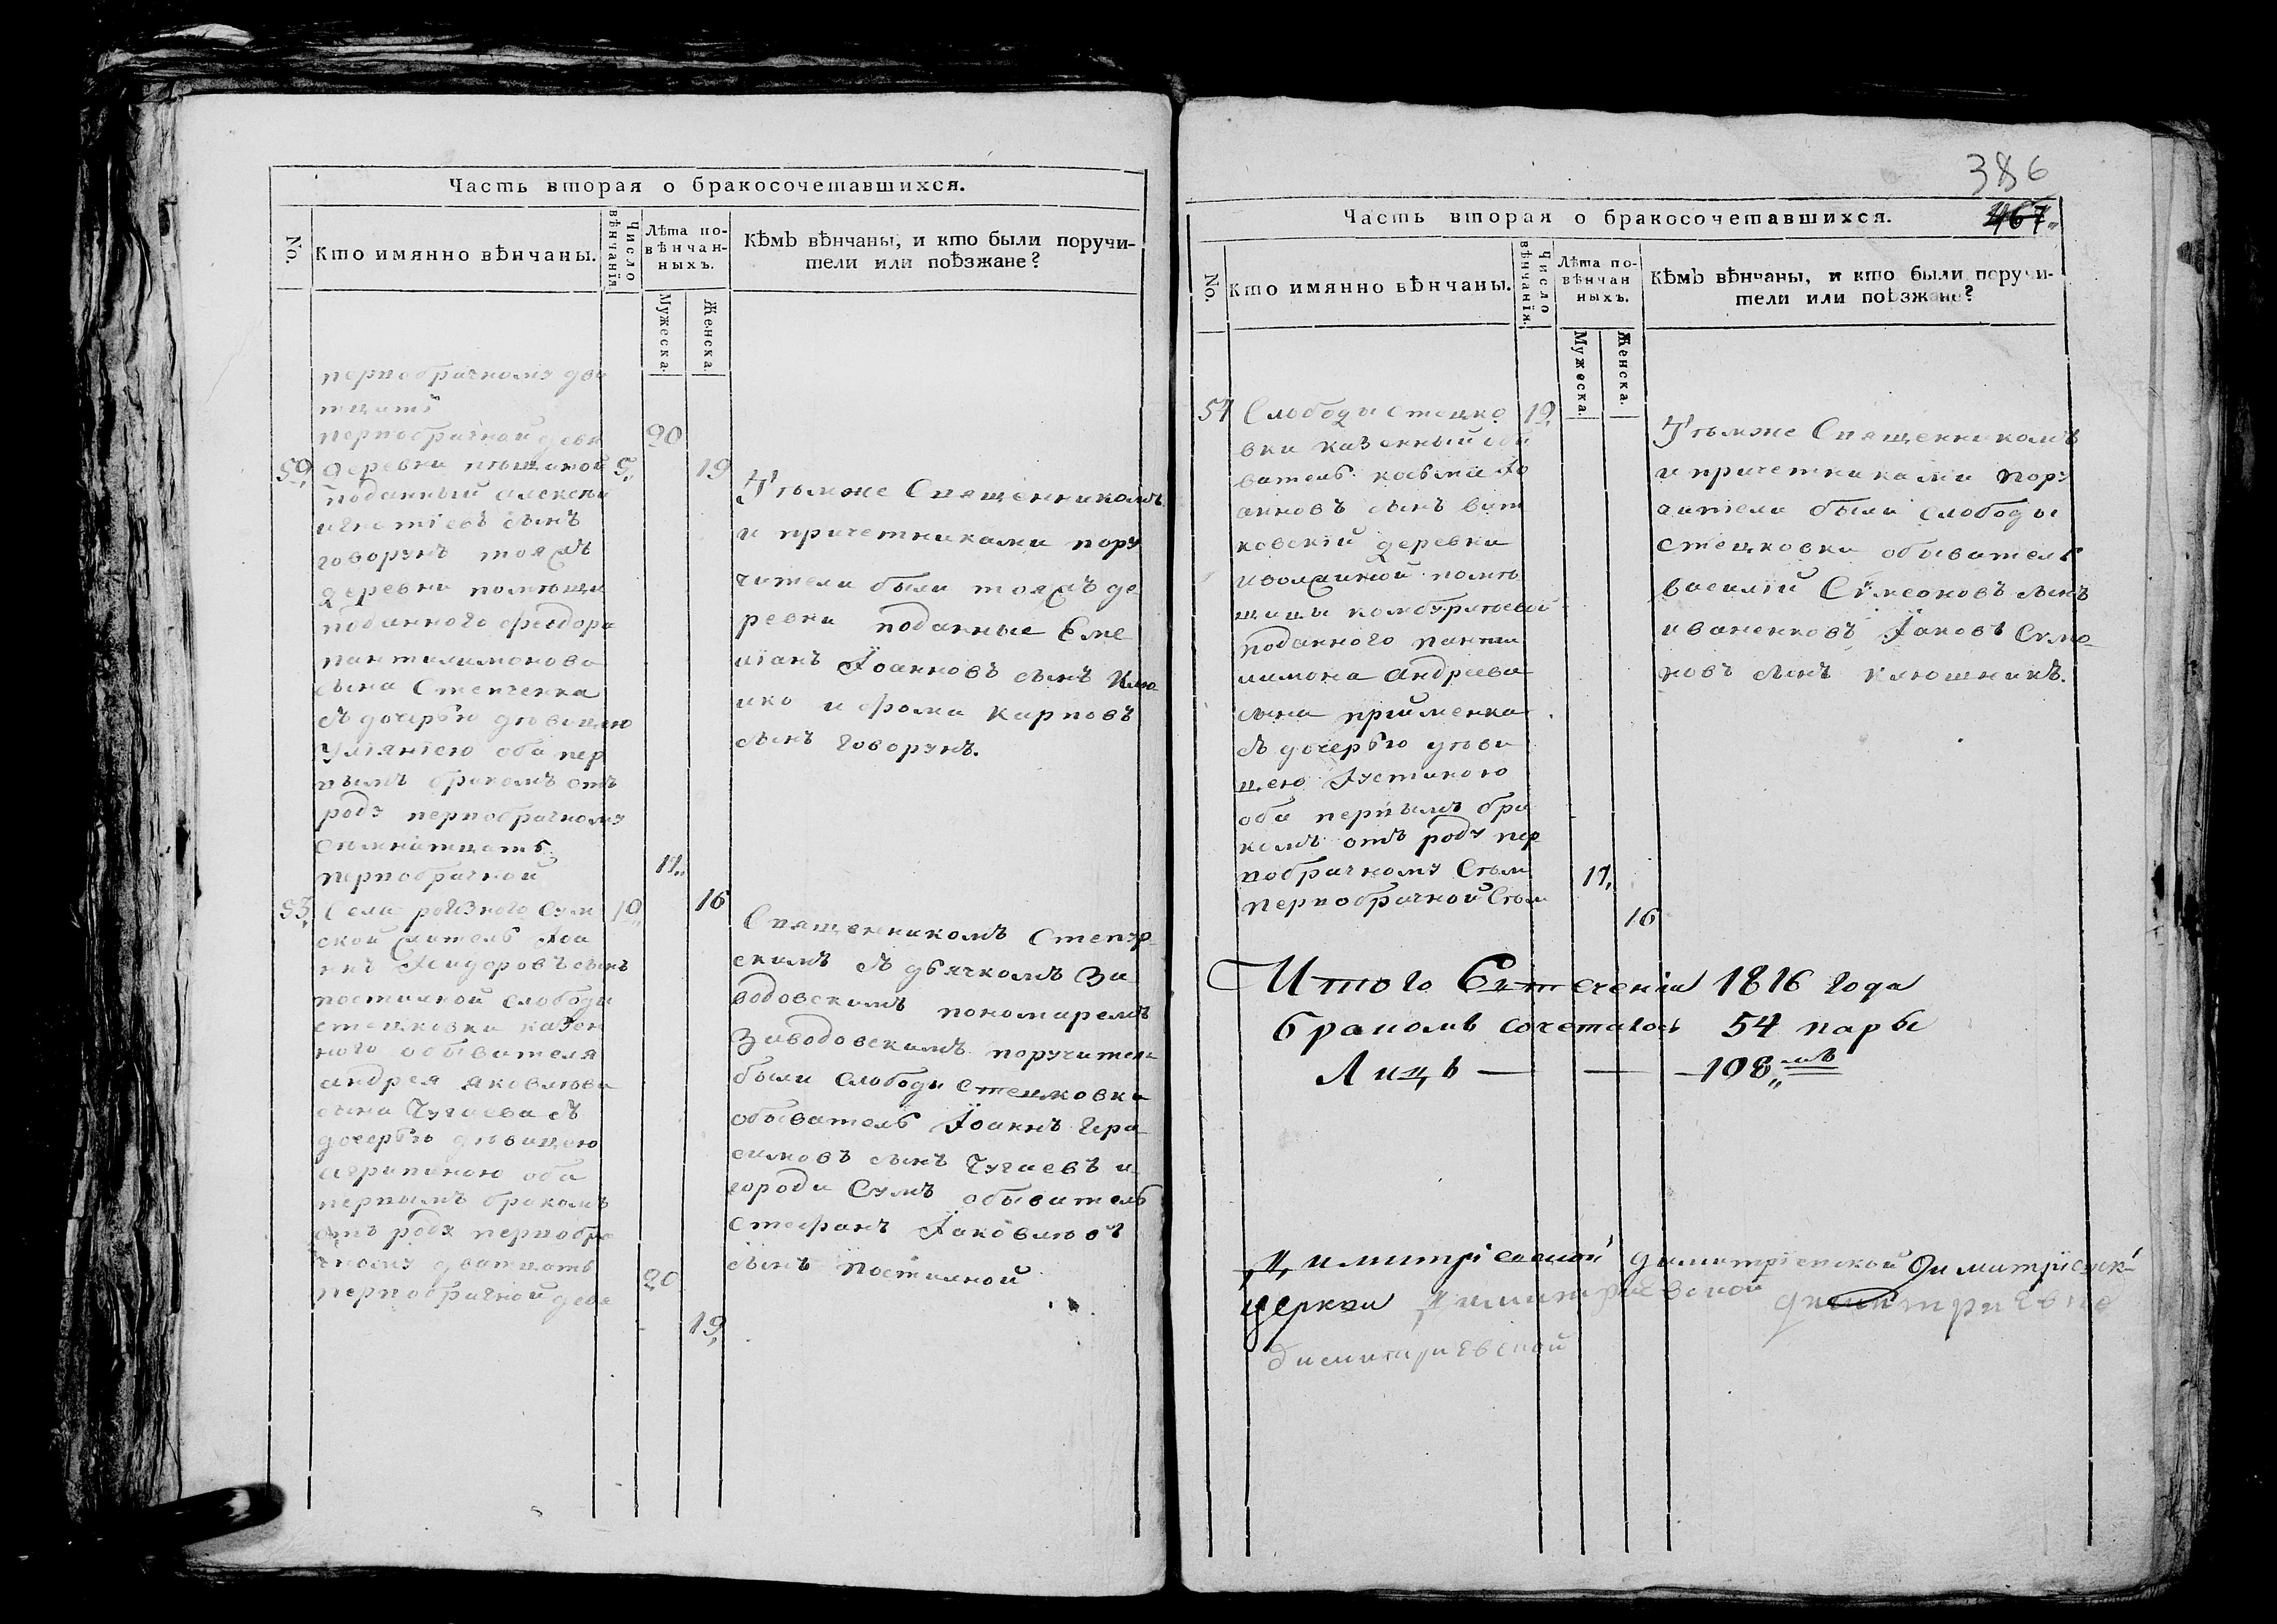 Часть вторая о бракосочетавшихся.
No.
Кто имянно вѣнчаны.
Число вѣнчанія
Лѣта по-
вѣнчан-
ныхъ.
Мужеска.
Женска.
Кѣмъ вѣнчаны, и кто были поручи-
тели или поѣзжане?
первобрачному два
тцать
первобрачной девя
20
19
52, деревни 5,,
поданный алексѣй
игнатіевъ сынъ
говорунъ тояжъ
деревни помѣщи
поданного феодора
пантилимонова
сына Степченка
съ дочерью дѣвицею
Уліяніею оба пер
вымъ бракомъ отъ
роду первобрачному
Семнатцать
первобрачной
17,,
16
Тѣмже Священникомъ
и причетниками пору
чители были тояжъ де
ревни поданные Еме
ліанъ Іоанновъ сынъ
и фома карповъ
сынъ говорунъ.
53, Села Сум 12,
ской житель Іоа
ннъ Исидоровъ сынъ
постилной слободы
стецковки казен
ного обывателя
андрея яковлева
сына Чугаева съ
дочерью дѣвицею
агрипиною оба
первымъ бракомъ
отъ роду первобра
чному дватцать
первобрачной девя
20
19,
Священникомъ
скимъ съ дьячкомъ За
водовскимъ пономаремъ
Заводовскимъ поручители
были Слободы Стецковки
обыватель Іоаннъ Гера
симовъ сынъ Чугаевъ и
города Сумъ обыватель
Стефанъ Іаковлевъ
сынъ Постилной
386
467,,
Часть вторая о бракосочетавшихся.
No.
Кто имянно вѣнчаны.
Число вѣнчанія.
Лѣта по-
вѣнчан
ныхъ.
Мужеска.
Женска.
Кѣмъ вѣнчаны, и кто были поручи-
тели или поѣзжане?
54 Слободы стецко 12,
вки казенный обы
ватель козма Іо
анновъ сынъ
ковскій деревни
помѣ
щицы комбурлѣевой
поданного пантеи
лимона андреева
сына
съ дочерью дѣви
цею Іустиною
оба первымъ бра
комъ отъ роду пер
вобрачному Семь
первобрачной
17,
16
Тѣмже Священникомъ
и причетниками пору
чители были слободы
стецковки обыватель
василій Симеоновъ сынъ
иваненковъ, Іаковъ Симо
новъ сынъ ключникъ.
Итого Втеченіи 1816 года
бракомъ сочеталось 54 пары
Лицъ — — —108,,
Димитріевской димитріевской Димитріевск
церкви Димитриевской
димитриевской